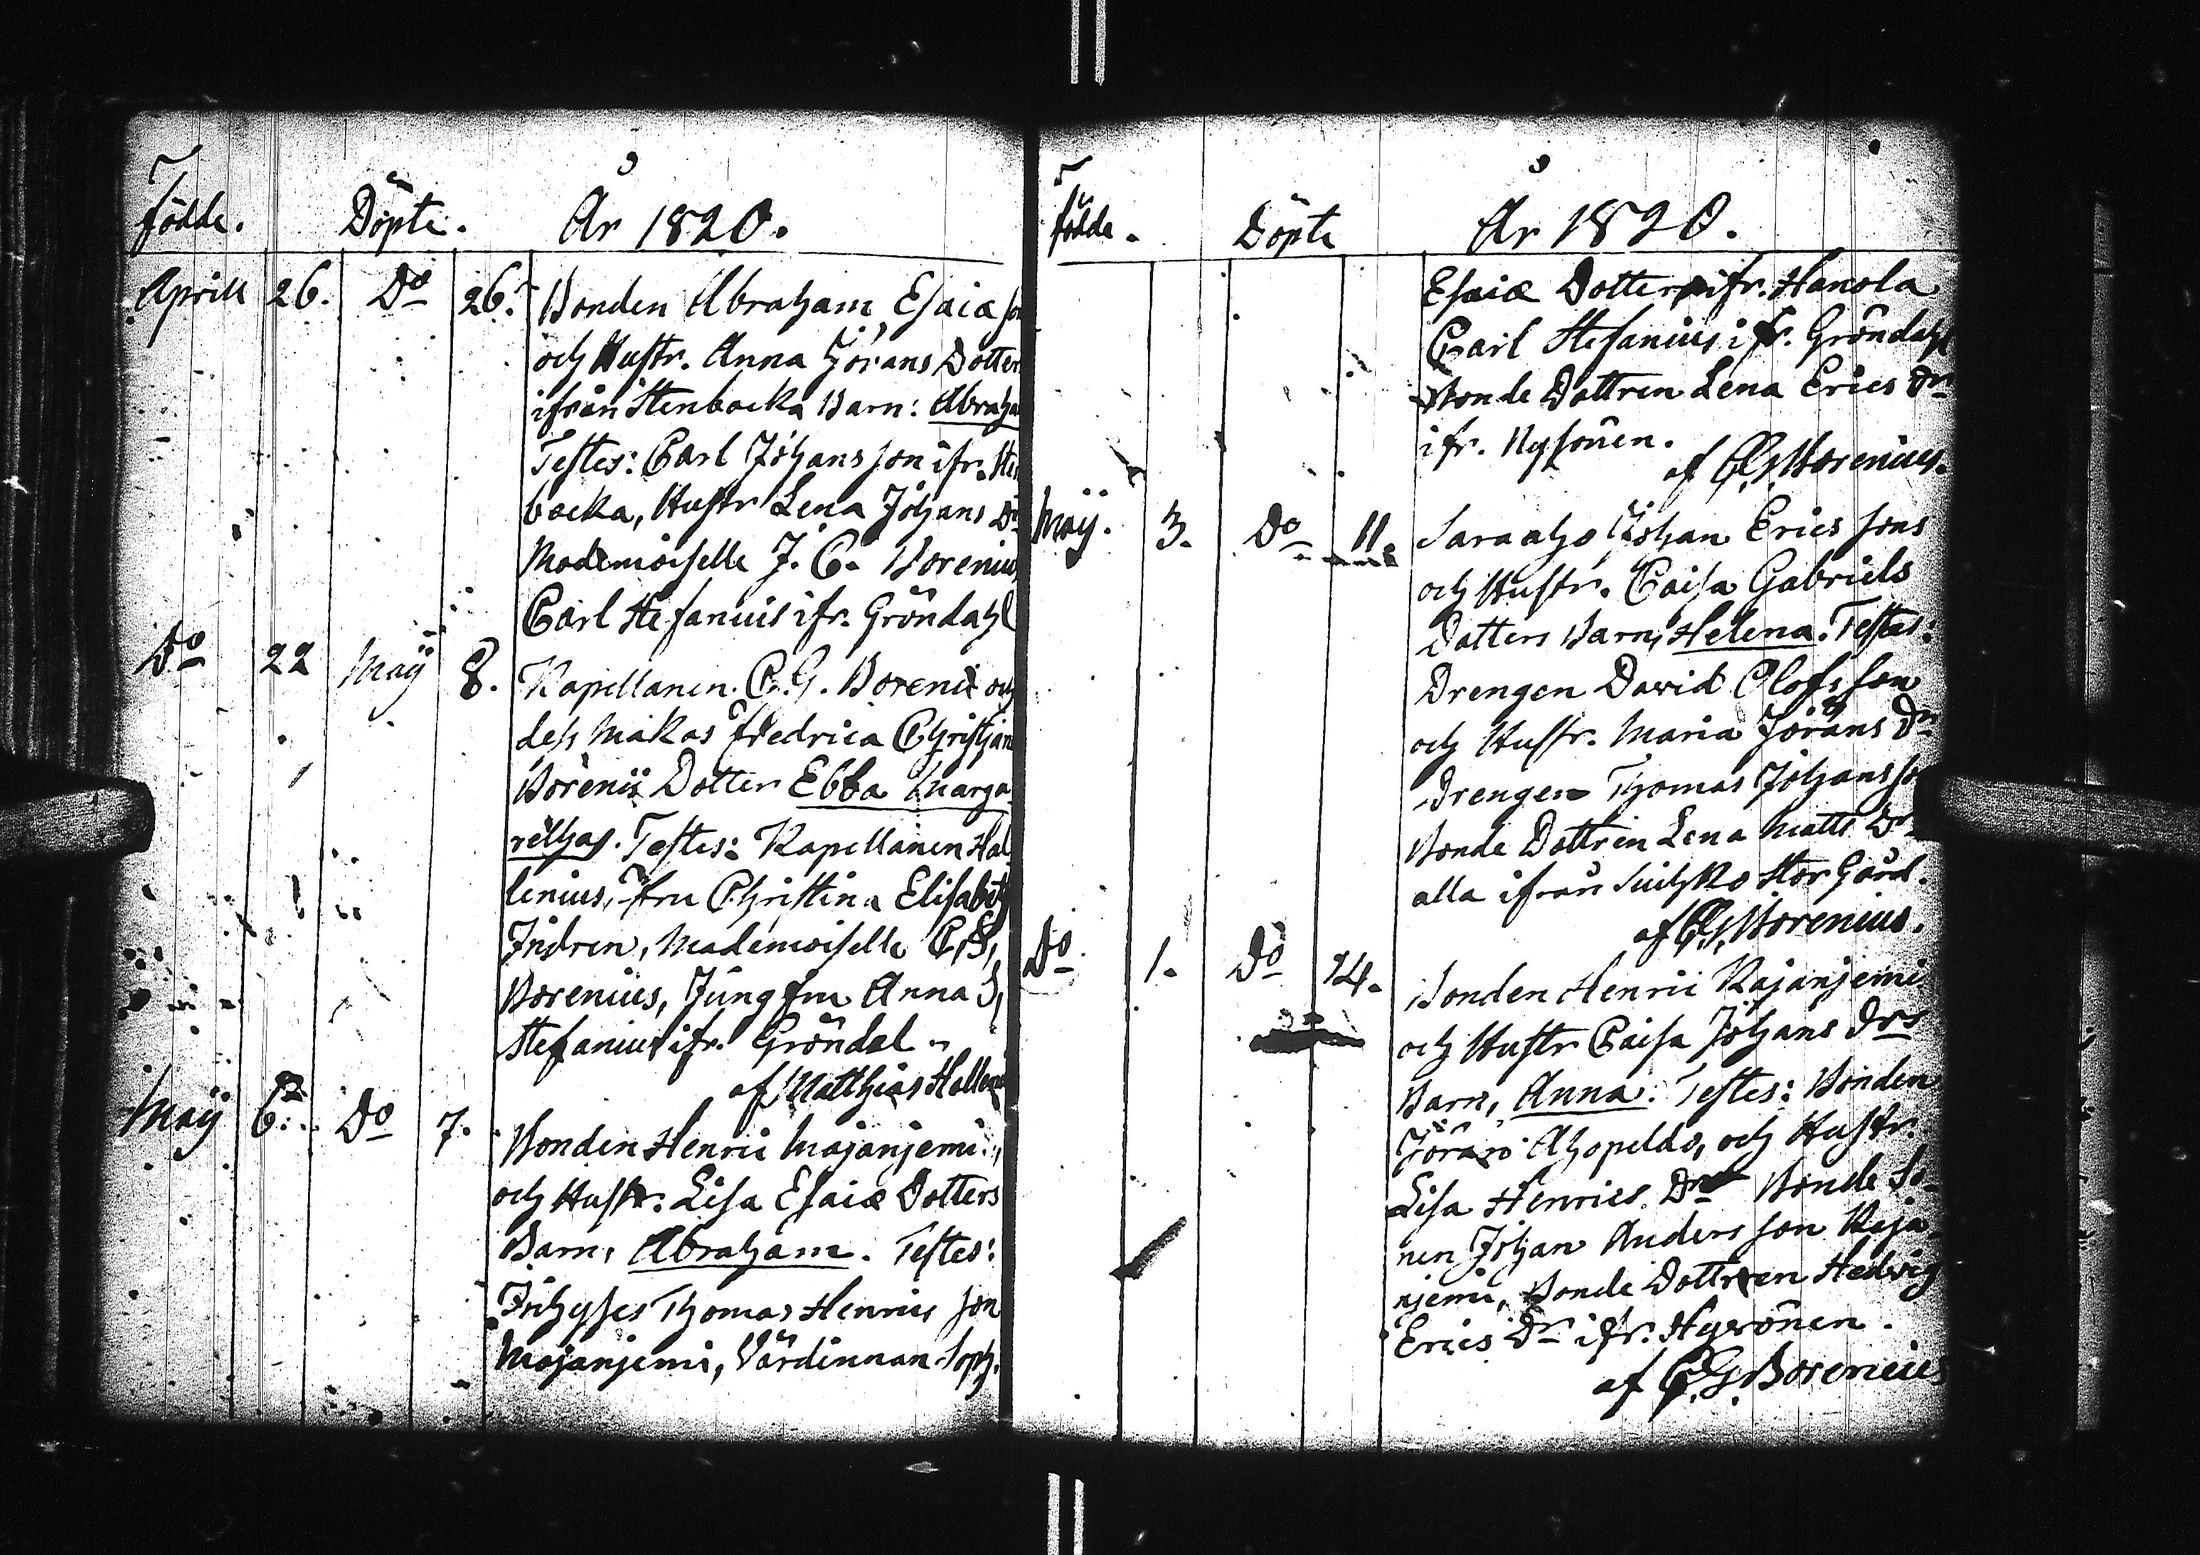 Födde. Döpte. År 1820.
Aprill 26. Do 26. Bonden Abraham Esaiæ son
och Hustr. Anna Jörans Dotters
ifrån Stenbacka Barn: Abraham
Testes: Carl Johansson ifr. Sten
backa, Hustr Lena Johans Dr
Mademoiselle J. C. Borenius
Carl Stefanius ifr. Gröndahl
Do 22 Maij 8. Kapellanen C. G. Borenii och
dess Makas Fredrica Christian
Borenii Dotter Ebba Marga
rethas. Testes: Kapellanen Hal
lenius, Fru Christina Elisabeth
Indren, Mademoiselle C. S.
Borenius, Jungfru Anna S.
Stefanius ifr. Gröndal.
af Matthias Hallenius
Maij 6. Do 7. Bonden Henric Majanjemi
och Hustr. Lisa Esaiæ Dotters
Barn, Abraham. Testes:
Thomas Henrics son
Majanjemi, Värdinnan Soph.
Födde. Döpte År 1820.
Esaiæ Dotter ifr. Hanola
Carl Stefanius ifr. Gröndahl
Bonde Dottren Lena Erics Dr
ifr. Nysönen.
af C. G. Borenius.
Maij. 3. Do 11. Saraaho Johan Ericssons
och Hustr. Caisa Gabriels
Dotters Barn, Helena. Testes:
Drengen David Olofsson
och Hustr. Maria Jörans Dr
Drengen Thomas Johansson
Bonde Dottren Lena Matts Dr
alla ifrån Suihko Stor Gård.
af C. G. Borenius.
Do 1. Do 14. Bonden Henric Rajanjemi
och Hustr Caisa Johans Drs
Barn, Anna. Testes: Bonden
Jöran Ahopeldo, och Hustr.
Lisa Henrics Dr Bonde So-
nen Johan Andersson Raja
njemi, Bonde Dottren Hedvig
Erics Dr ifr. Hyvönen.
af C. G. Borenius